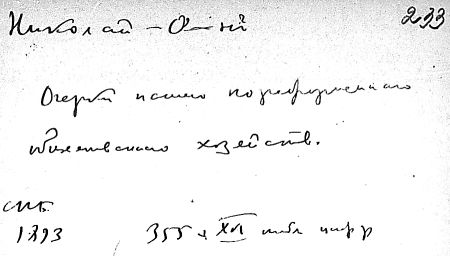 Николай-Онъ 233
Очерки нашего пореформенного
общественного хозяйств.
СПБ.
1893 355 + XVI табл цифр